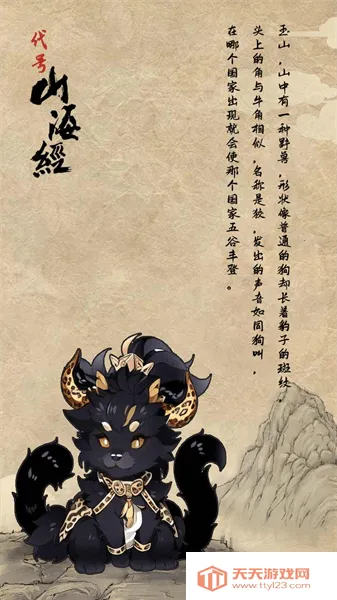 代号
山海經
玉山，山中有一种野兽，形状像普通的狗却长着豹子的斑纹
头上的角与牛角相似，名称是狡，发出的声音如同狗叫，
在哪个国家出现就会使那个国家五谷丰登。
天天游戏网
www.ttyl23.com